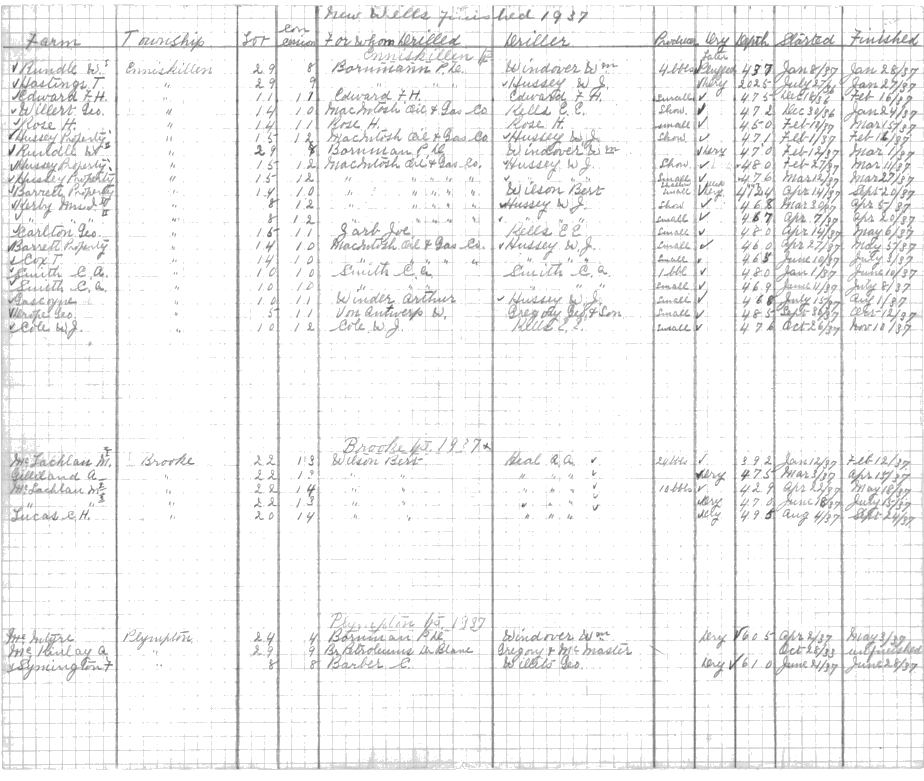 New Wells Finished 1937
Farm Township Lot Concession For Whom Drilled Driller Produce Dry Depth Started Finished
Enniskillen
✓ Rundle W. Enniskillen 29 8 Bornmann P. De. Windover Wm 4 bbls ✓ Later Plugged 437 Jan 8/37 Jan 28/37
✓ Hastings T " 29 9 ✓ Hussey W J. ✓ Dry 2025 July 27/36 Jan 27/37
✓ Edward F H. " 11 11 Edward F H. Edward F. H. Small ✓ 475 Dec 16/36 Feb 16/37
✓ Willert Geo. " 14 10 MacIntosh Oil & Gas Co Kells E. E. Show ✓ 472 Dec 30/36 Jan 24/37
✓ Rose H. " 14 11 Rose H. Rose H small ✓ 450 Feb 19/37 Mar 15/37
✓ Hussey Property " 15 12 MacIntosh Oil & Gas Co ✓ Hussey W J. Show ✓ 471 Feb 1/37 Feb 16/37
✓ Rundle W " 29 8 Bornmann P De Windover Wm ✓ Dry 470 Feb 12/37 Mar 1/37
✓ Hussey Property " 15 12 MacIntosh Oil & Gas Co. Hussey W J. Show ✓ 480 Feb 27/37 Mar 14/37
✓ Hussey Property " 15 12 " " " " " " Small ✓ 476 Mar 12/37 Mar 27/37
✓ Barrett Property " 14 10 " " " " Wilson Bert Small Dry 4724 Apr 14/37 Sept 20/37
✓ Kerby Mrs J " 8 12 " " " " ✓ Hussey W J. Show ✓ 468 Mar 30/37 Apr 5/37
✓ " " " " 8 12 " " " " " " Small ✓ 467 Apr 7/37 Apr 20/37
✓ Carlton Geo. " 15 11 Zarb Joe Kells E E. Small ✓ 480 Apr 14/37 May 6/37
✓ Barrett Property " 14 10 MacIntosh Oil & Gas Co. ✓ Hussey W. J. Small ✓ 460 Apr 27/37 May 5/37
✓ Cox T " 14 10 " " " " " " Small 465 June 10/37 July 3/37
✓ Smith C. A. " 10 10 Smith C. A. Smith C. A. 1 bbl ✓ 480 Jan 1/37 June 10/37
✓ Smith C. A. " 10 10 " " " " Small ✓ 469 June 11/37 July 8/37
✓ Gascoyne " 10 11 Winder Arthur ✓ Hussey W J. Small ✓ 468 July 15/37 Aug 1/37
✓ Geo. " 5 11 Von Antwerp W. Gregory Geo & Son Small ✓ 485 Sept 30/37 Oct 12/37
✓ Cole W J. " 10 12 Cole W. J. Kells E. E. Small ✓ 476 Oct 26/37 Nov 10/37
Brooke 1937
McLachlan M. Brooke 22 13 Wilson Bert Heal A. A. ✓ 24 bbls ✓ 392 Jan 12/37 Feb 12/37
Gilliland A " 22 13 " " " " " ✓ ✓ Dry 475 Mar 3/37 Apr 15/37
McLachlan M " 22 14 " " " " " ✓ 10 bbls ✓ 429 Apr 22/37 May 18/37
" " " 22 13 " " " " " ✓ ✓ Dry 470 June 18/37 July 15/37
Lucas C. H. " 20 14 " " " " " ✓ Dry 495 Aug 4/37 Sept 24/37
Plympton 1937
McIntyre Plympton 24 4 Bornman P De Windover Wm Dry ✓ 605 Apr 2/37 May 3/37
McKinlay A " 29 9 Br Petroleums De Blane Gregory & McMaster Oct 28/33 unfinished
✓ Symington F " 8 8 Barber C. Geo. Dry ✓ 610 June 21/37 June 28/37